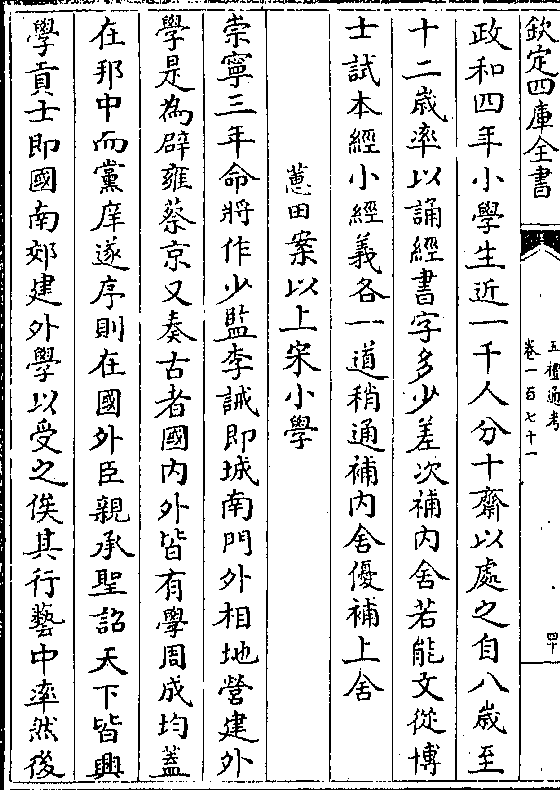 欽定四庫全書
五禮通考
卷一百七十一
四十
政和四年小學生近一千人分十齋以處之自八歲至
十二歲率以誦經書字多少差次補内舍若能文從博
士試本經小經義各一道稍通補内舍優補上舍
蕙田案以上宋小學
崇寧三年命將作少監李誡即城南門外相地營建外
學是為辟雍蔡京又奏古者國内外皆有學周成均蓋
在邦中而黨庠遂序則在國外臣親承聖詔天下皆興
學貢士即國南郊建外學以受之俟其行藝中率然後